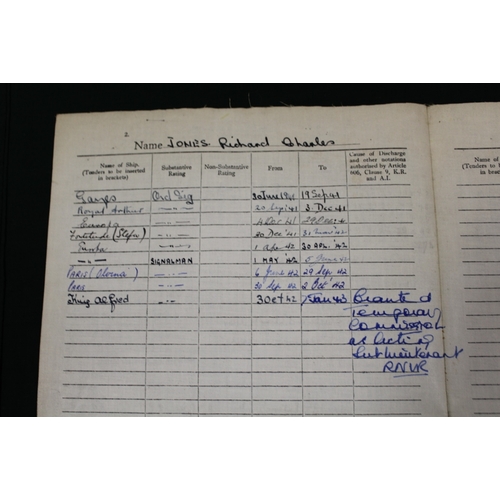 2
Name JONES Richard Charles
Name of Ship. (Tenders to be inserted in brackets) Substantive Rating Non-Substantive Rating From To Cause of Discharge and other notations authorised by Article 606, Clause 9, K.R. and A.I.
Ganges Ord Sig 19 Sep 41
Royal Arthur —〃— 20 Sep 41 3 Dec 41
Europa —〃— 4 Dec 41 29 Dec 41
Fortitude —〃— 30 Dec 41
—〃— 1 Apr 42 30 Apl 42
—〃— SIGNALMAN 1 MAY 42 5 June 42
PARIS —〃— 6 June 42 29 Sep 42
PARIS —〃— 30 Sep 42 2 Oct 42
King Alfred —〃— 3 Oct 42 7 Jan 43 Granted
Temporary
Commission
as Acting
Sub Lieutenant
RNVR
Name of Sh
(Tenders to be in
in brackets